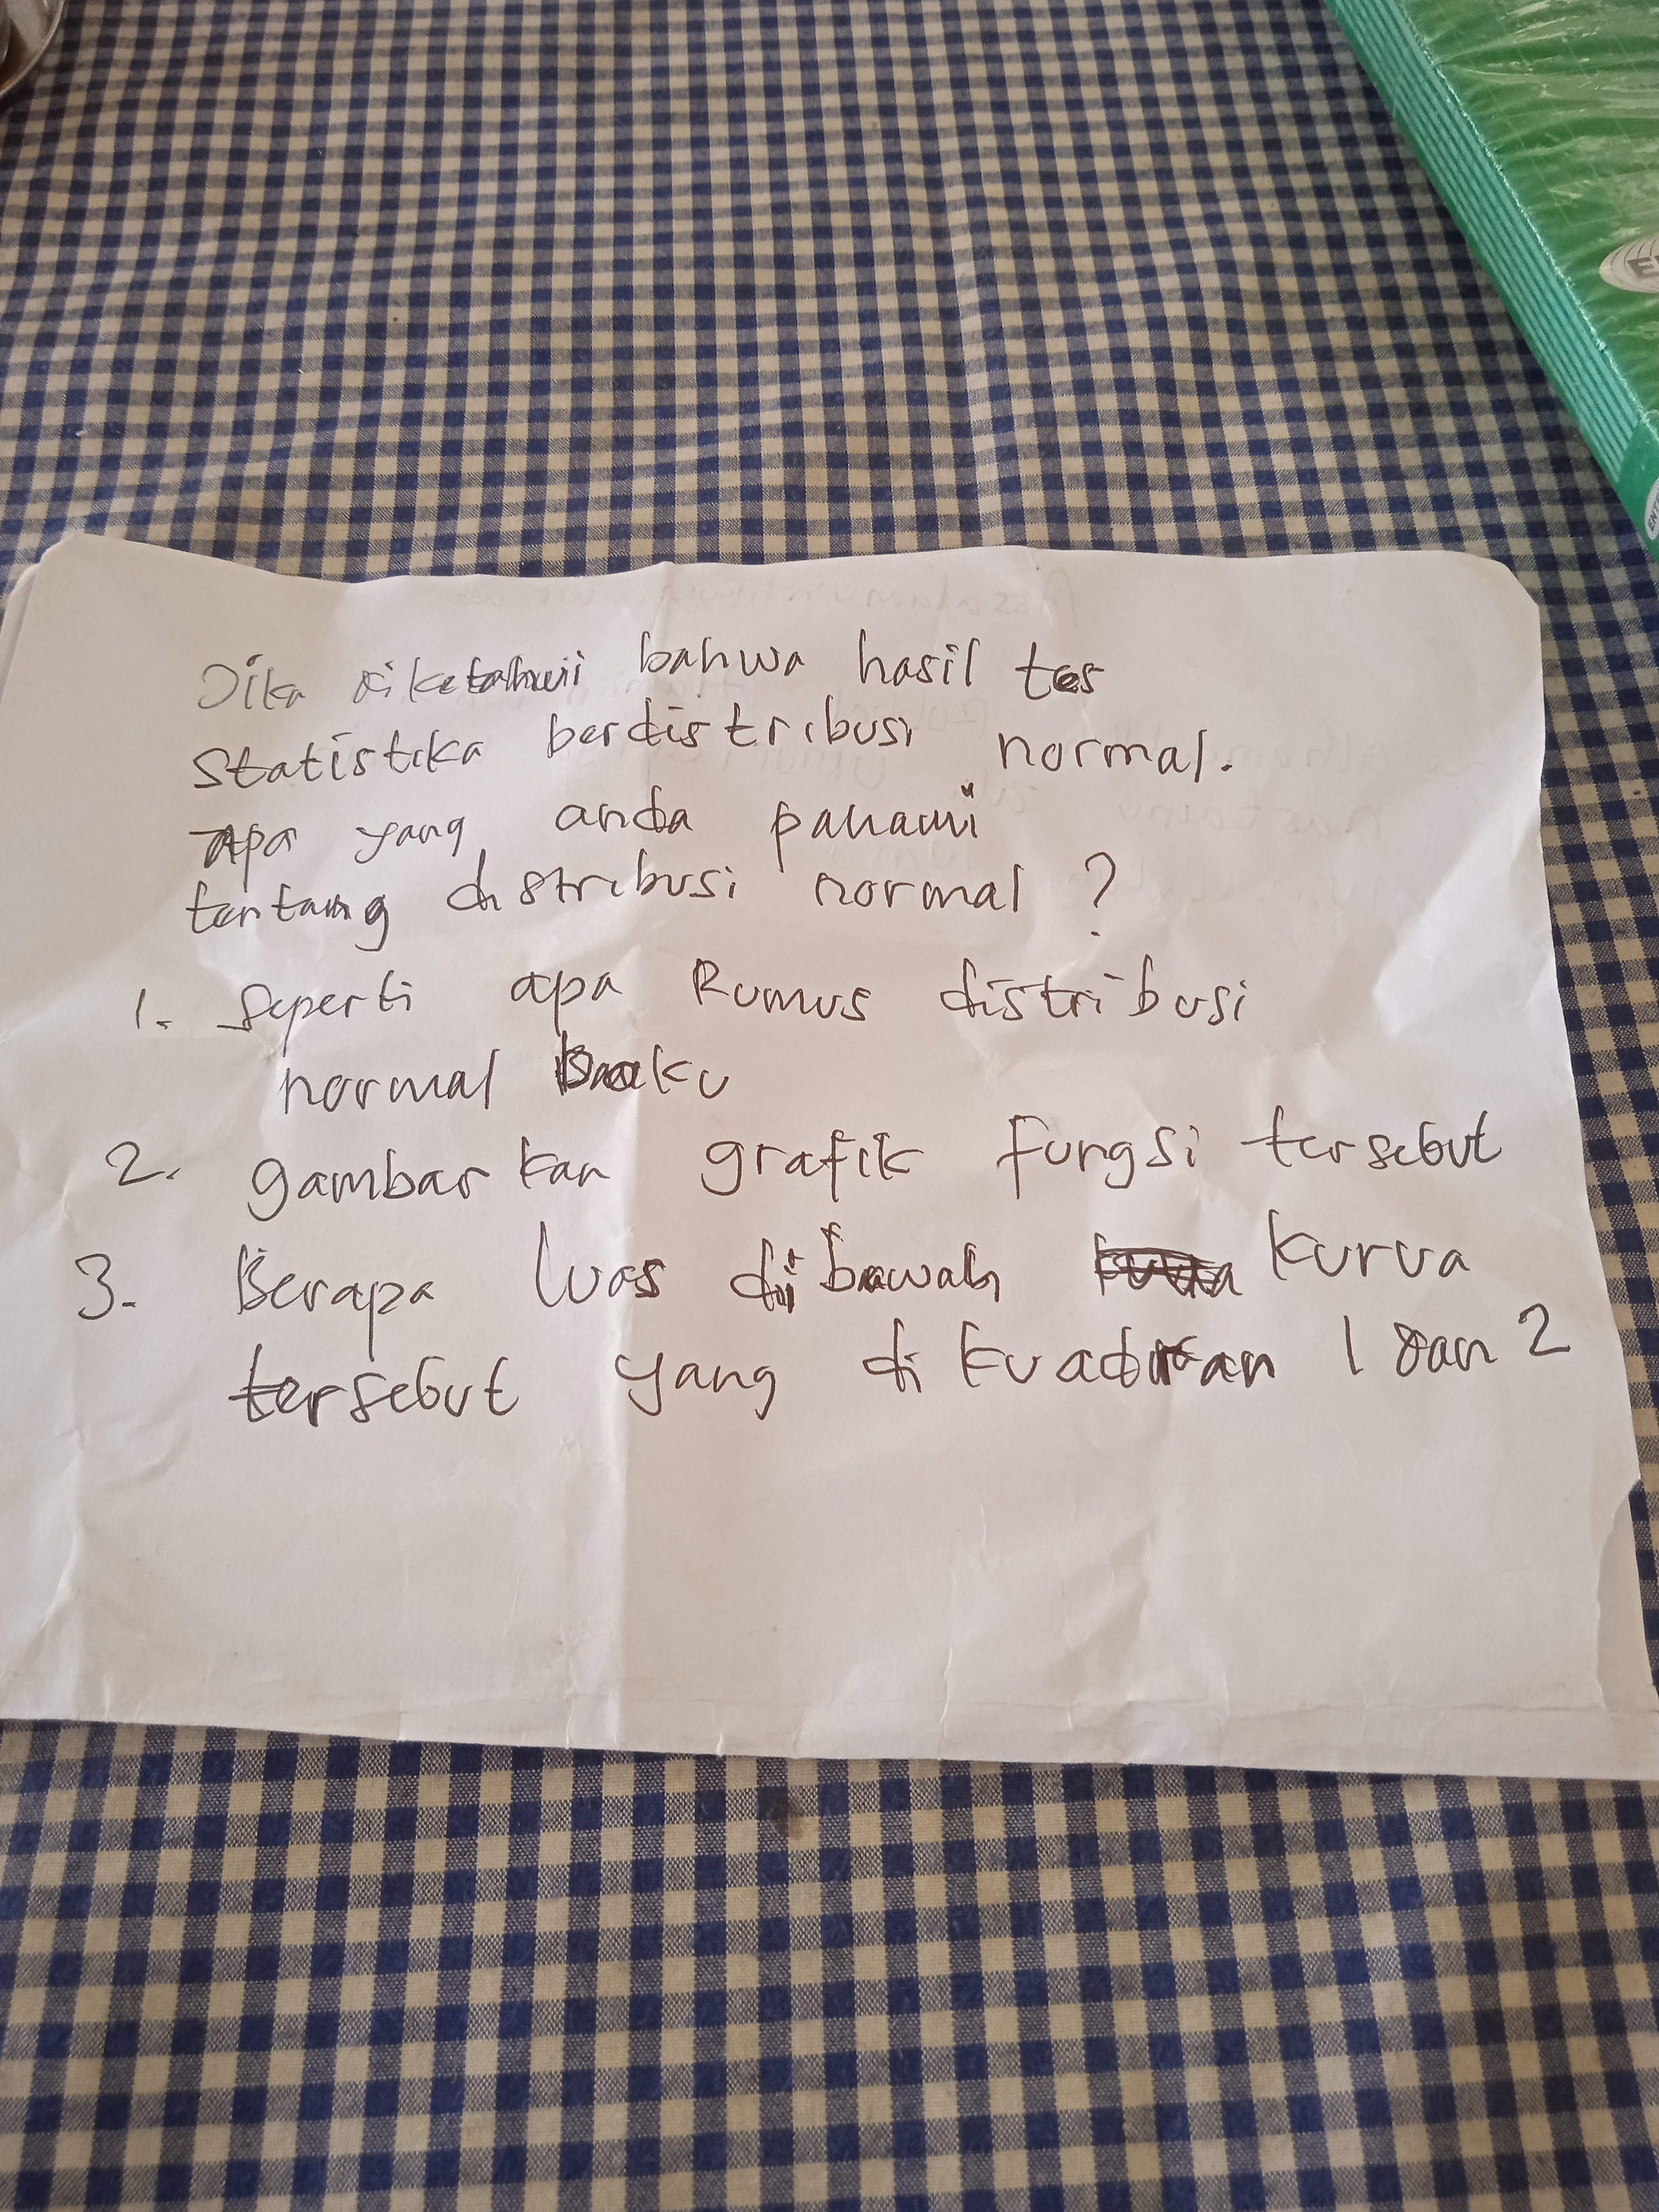 Jika diketahui bahwa hasil tes
Statistika berdistribusi normal.
Apa yang anda pahami
tentang distribusi normal ?
1. Seperti apa Rumus distribusi
normal baku
2. gambarkan grafik fungsi tersebut
3. Berapa luas di bawah kurva
tersebut yang di kuadran 1 dan 2